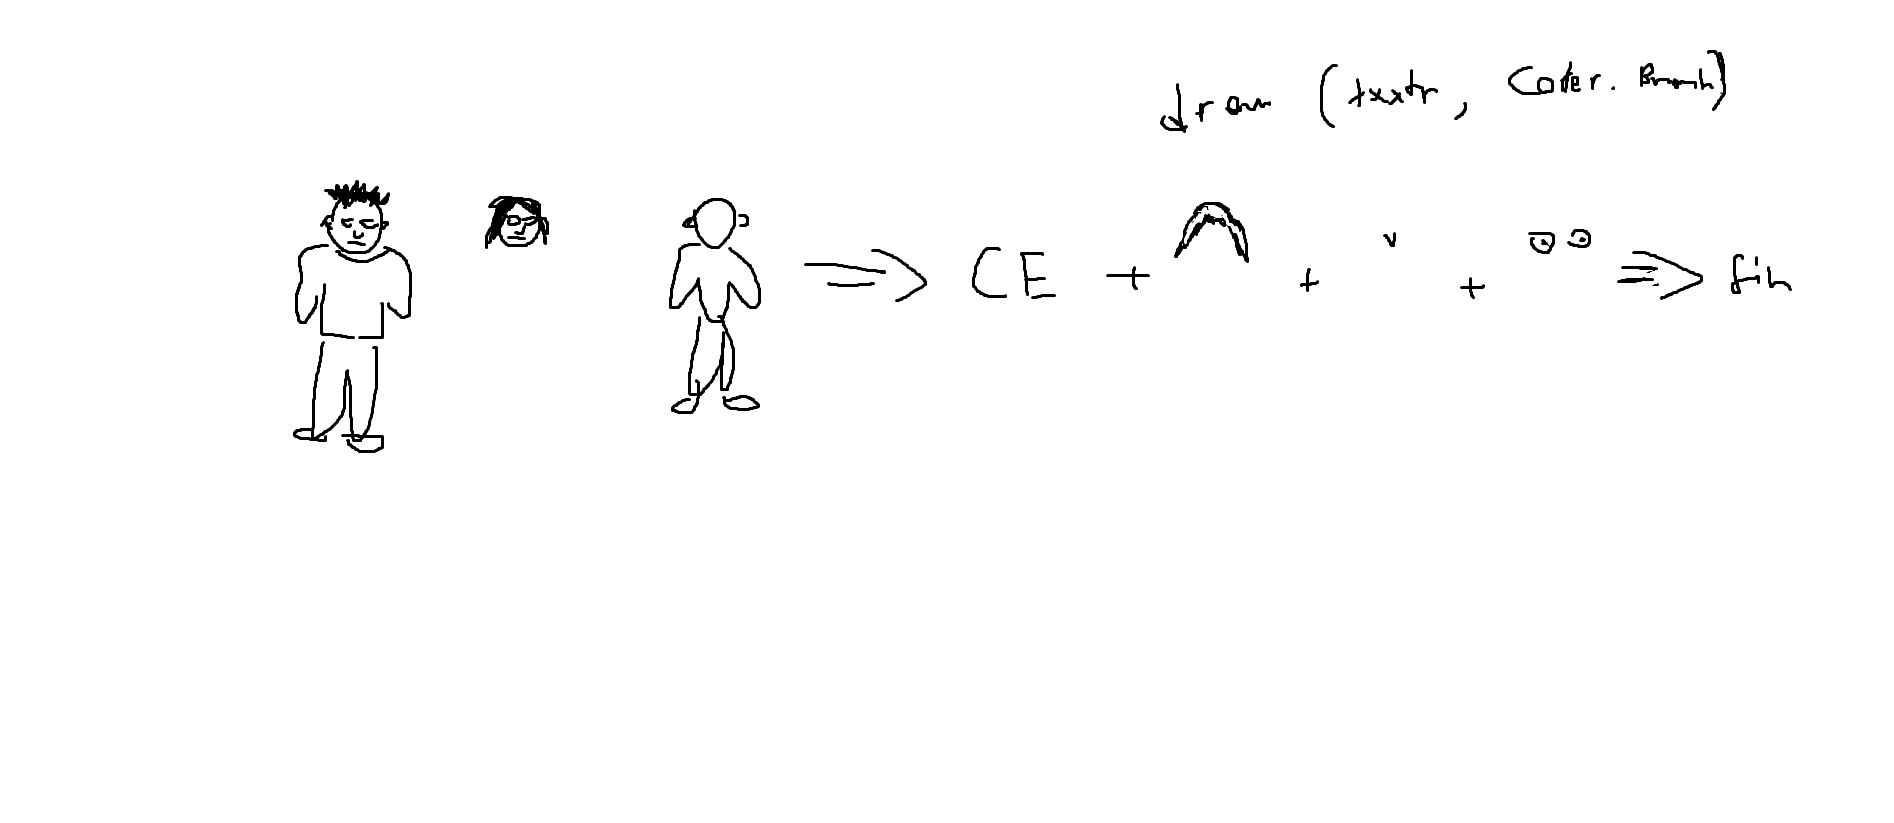 draw (txxtr, Color. Brown)
CE + + + fin